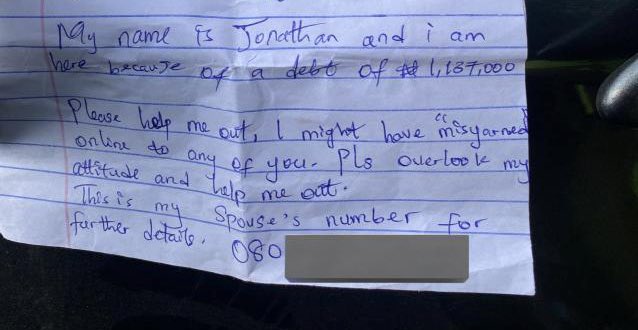 My name is Jonathan and i am
here because of a debt of ₦ 1,137,000
Please help me out, I might have "misyarned"
online to any of you. Pls overlook my
attitude and help me out.
This is my spouse's number for
further details. 080